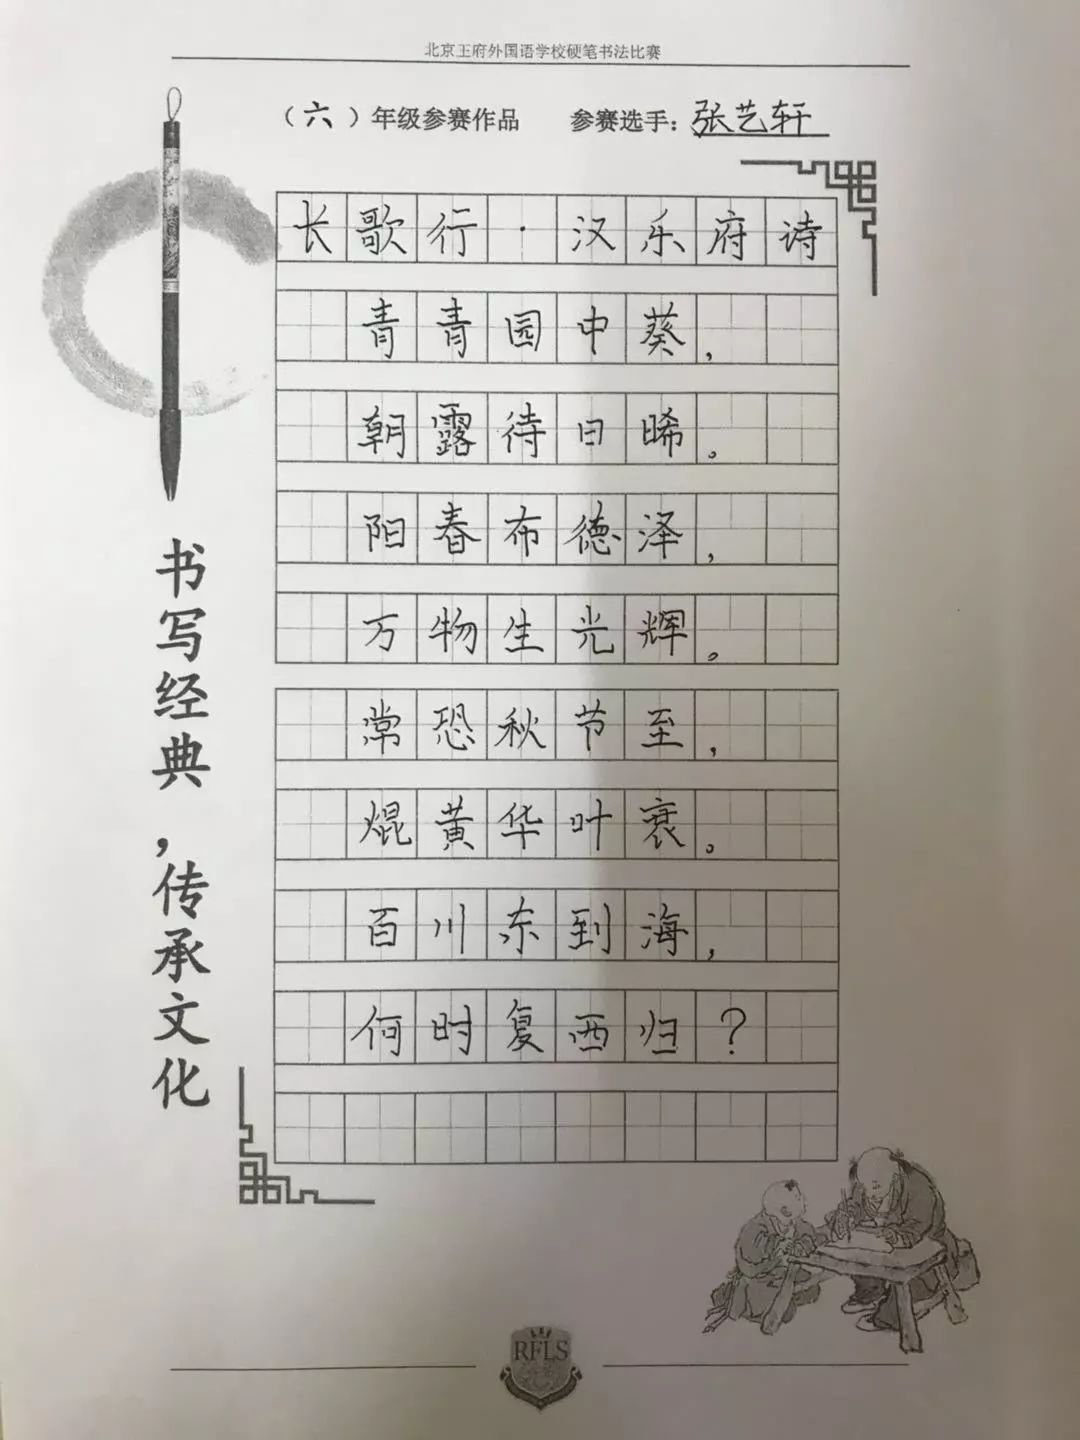 北京王府外国语学校硬笔书法比赛
（六）年级参赛作品 参赛选手：张艺轩
长歌行·汉乐府诗
青青园中葵，
朝露待日晞。
阳春布德泽，
万物生光辉。
常恐秋节至，
焜黄华叶衰。
百川东到海，
何时复西归？
书写经典，传承文化
RFLS